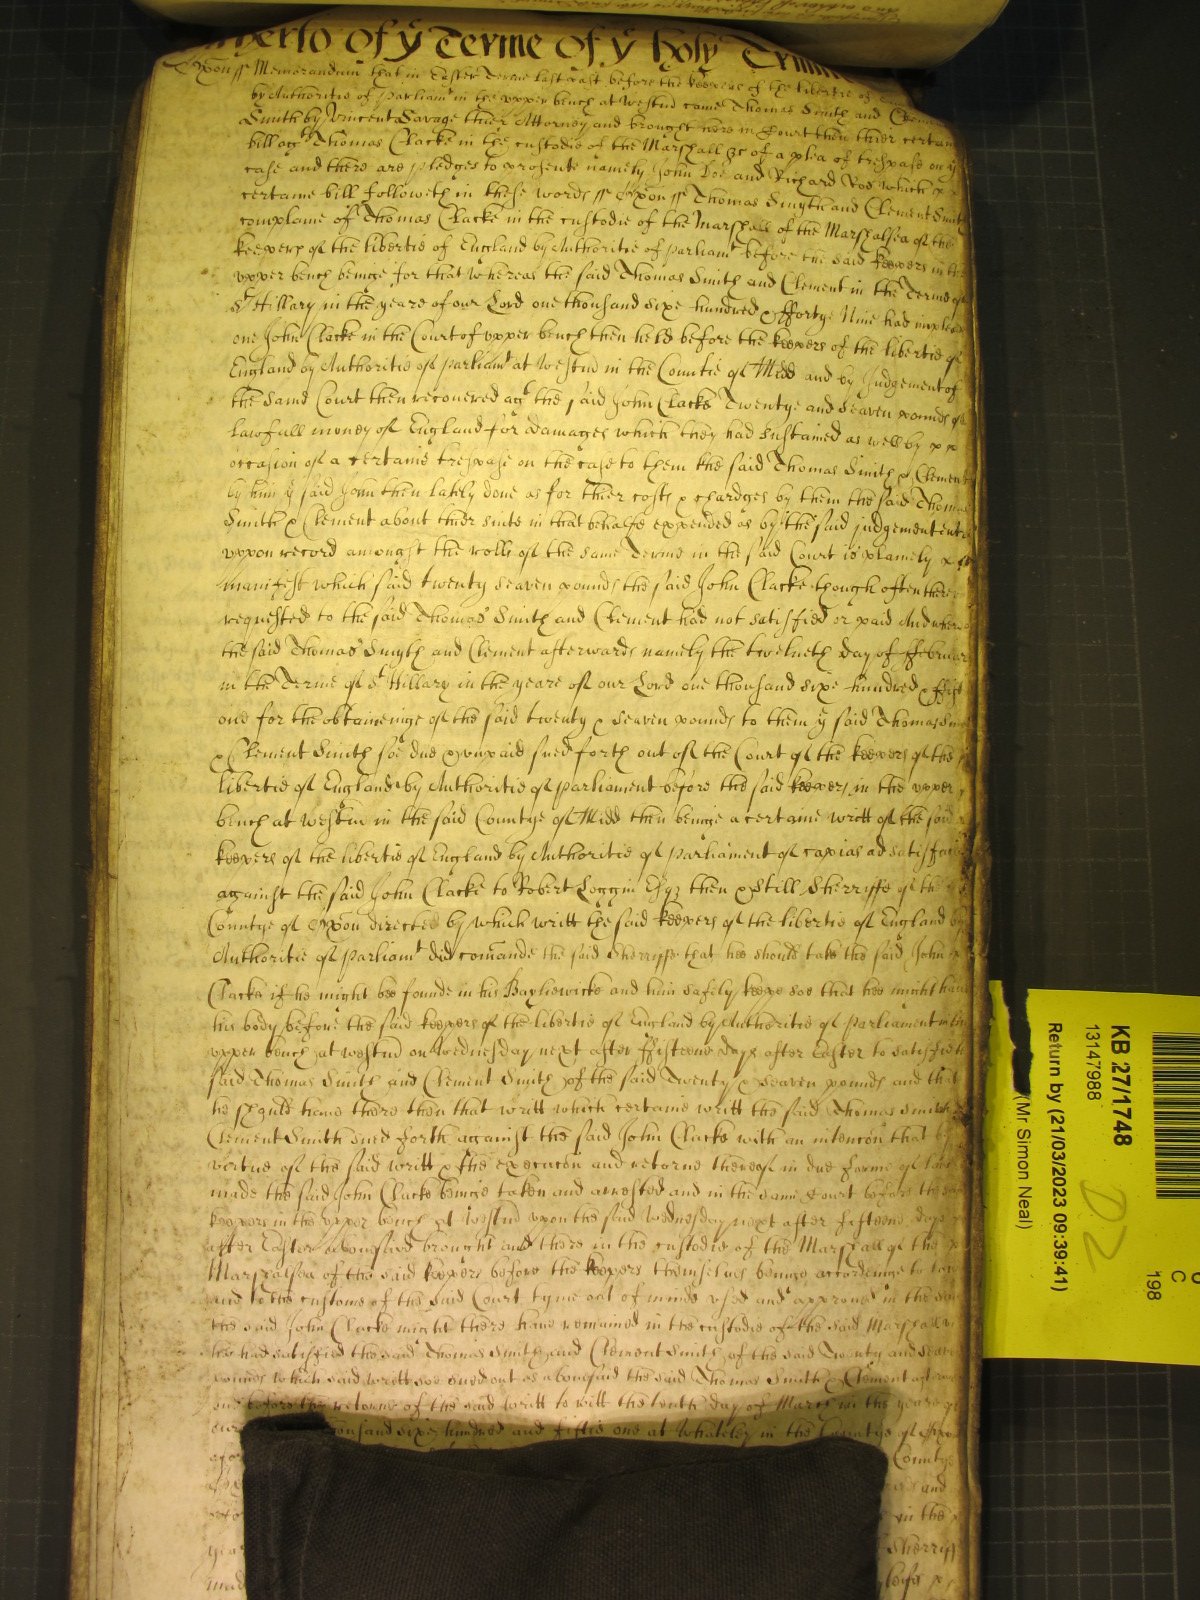 of yͤ Terme of yͤ holy
Oxon ss Memorandum that in Easter Terme last past before the keepers of the libertie of
by Authoritie of Parliamᵗ in the upper bench at Westm̄ came Thomas Smith and
Smith by Vincent Savage their Attorney and brought here in Court then their certaine
bill agᵗ Thomas Clacke in the custodie of the Marshall &c of a plea of trespase on yͤ
case and there are pledges to prosecute namely John Doe and Richard Roe which
certaine bill followeth in these words ss Oxon ss Thomas Smyth and Clement Smith
complaine of Thomas Clacke in the custodie of the Marshall of the Marshalsea of the
keepers of the libertie of England by Authoritie of Parliamᵗ before the said keepers in the
upper bench beinge for that Whereas the said Thomas Smith and Clement in the Terme of
Sᵗ Hillary in the yeare of our Lord one thousand sixe hundred & ffortye Nine had
one John Clacke in the Court of upper bench then held before the keepers of the libertie of
England by Authoritie of Parliamᵗ at Westm̄ in the Countie of Midd and by Judgement of
the same Court then recovered agᵗ the said John Clacke Twentye and seaven pounds of
lawfull money of England for damages which they had sustained as well by
occasion of a certaine trespase on the case to them the said Thomas Smith & Clement
by him yͤ said John then lately done as for thier costs & chardges by them the said Thomas
Smith & Clement about thier suite in that behalfe expended as by the said judgement
uppon record amongst the rolls of the same Terme in the said Court is plainely
manifest which said twenty seaven pounds the said John Clacke though often
requested to the said Thomas Smith and Clement had not satisfied or paid And
the said Thomas Smyth and Clement afterwards namely the twelveth day of ffebruary
in the Terme of Sᵗ Hillary in the yeare of our Lord one thousand sixe hundred &
one for the obtaininge of the said twenty & seaven pounds to them yͤ said Thomas
& Clement Smith soe due & unpaid sued forth out of the Court of the keepers of the
libertie of England by Authoritie of Parliament before the said keepers in the upper
bench at Westm̄ in the said Countye of Midd then beinge a certaine writt of the said
keepers of the libertie of England by Authoritie of Parliament of capias ad
against the said John Clacke to Robert Loggin Esqꝫ then & still Sherriffe of the
Countye of Oxon directed by which writt the said keepers of the libertie of England by
Authoritie of Parliamᵗ did comande the said Sherriffe that hee should take the said John
Clacke if he might bee founde in his Bayliewicke and him safely keepe soe that hee might have
his body before the said keepers of the libertie of England by Authoritie of Parliament in the
upper bench at Westm̄ on Wednesday next after ffifteene days after Easter to satisfie
said Thomas Smith and Clement Smith of the said Twenty & seaven pounds and that
he should have there then that writt which certaine writt the said Thomas Smith
Clement Smith sued forth against the said John Clacke with an intencōn that by
vertue of the said writt & the execucōn and retorne thereof in due forme of law
made the said John Clacke beinge taken and arrested and in the same Court before the
keepers in the upper bench at Westm̄ upon the said Wednesday next after fifteene days
after Easter abovesaid brought and there in the custodie of the Marshall of the
Marshalsea of the said keepers before the keepers themselves beinge accordinge to
and to the custome of the said Court tyme out of minde used and approved in the
the said John Clacke might there have remained in the custodie of the said Marshall
hee had satisfied the said Thomas Smith and Clement Smith of the said Twenty and
pounds which said writt soe sued out as abovesaid the said Thomas Smith & Clement
before the retorne of the said writt to witt the tenth day of March in the yeare of
sixe hundred and fiftie one at Whateley in the Countye of
Countye
and
in the
Sherriffe
KB 27/1748
13147988
Return by (21/03/2023 09:39:41)
(Mr Simon Neal)
D2
C
198